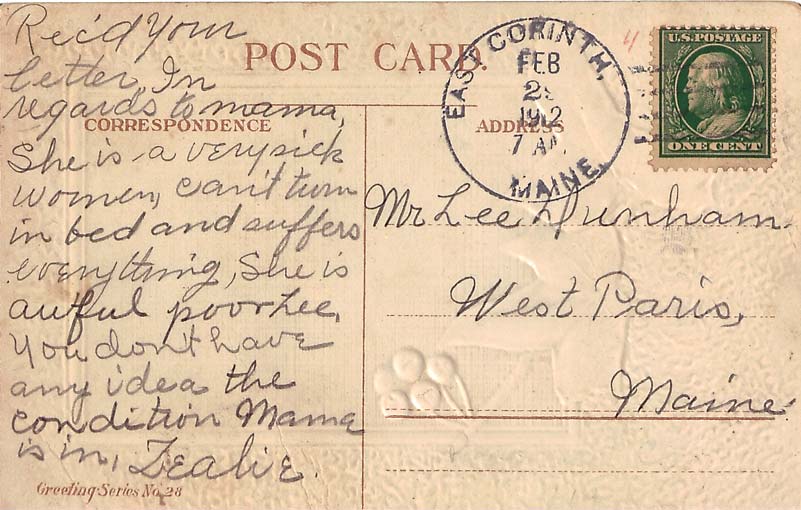 POST CARD.
CORRESPONDENCE
Rec'd Your
letter, In
regards to mama,
She is a very sick
women, can't turn
in bed and suffers
everything, She is
awful poor Lee,
You don't have
any idea the
condition Mama
is in, Zealie.
Greeting Series No. 28
ADDRESS
EAST CORINTH,
FEB
1912
7 AM
MAINE.
4
U.S. POSTAGE
ONE CENT
Mr Lee Dunham
West Paris,
Maine